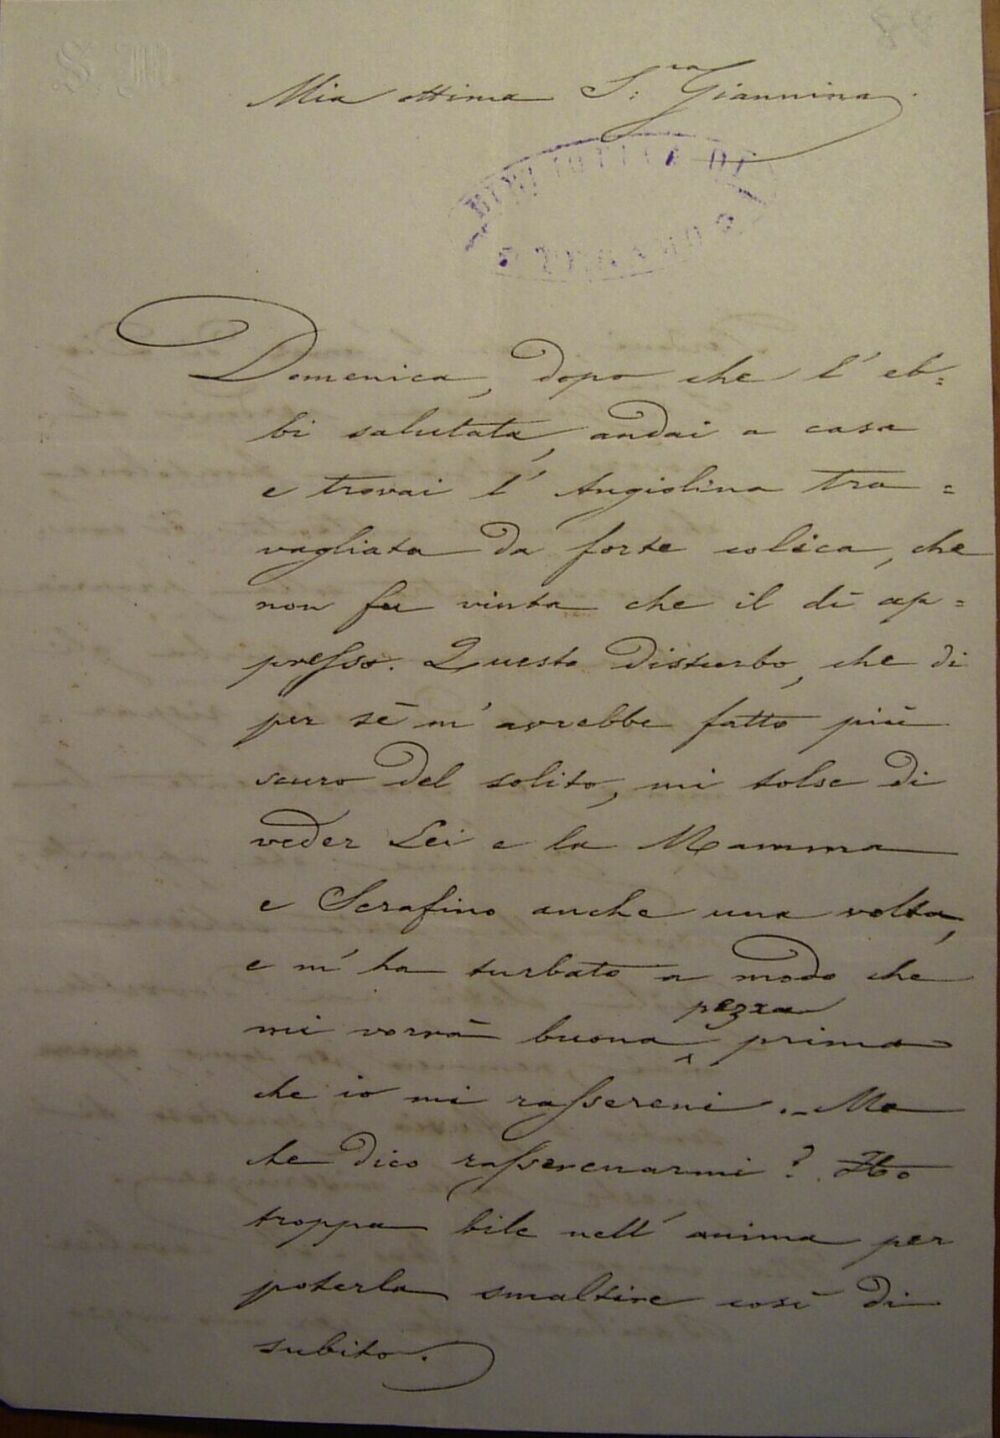 S. M
Mia ottima S:ra Giannina.
BIBLIOTECA DI
Domenica, dopo che l'eb=
bi salutata, andai a casa
e trovai l'Angiolina tra=
vagliata da forte colica, che
non fu vinta che il dì ap=
presso. Questo disturbo, che di
per sè m'avrebbe fatto più
scuro del solito, mi tolse di
veder Lei e la Mamma
e Serafino anche una volta,
e m'ha turbato a modo che
mi vorrà buona pezza prima
che io mi rassereni. – Ma
che dico rasserenarmi? Ho
troppa bile nell'anima per
poterla smaltire così di
subito.